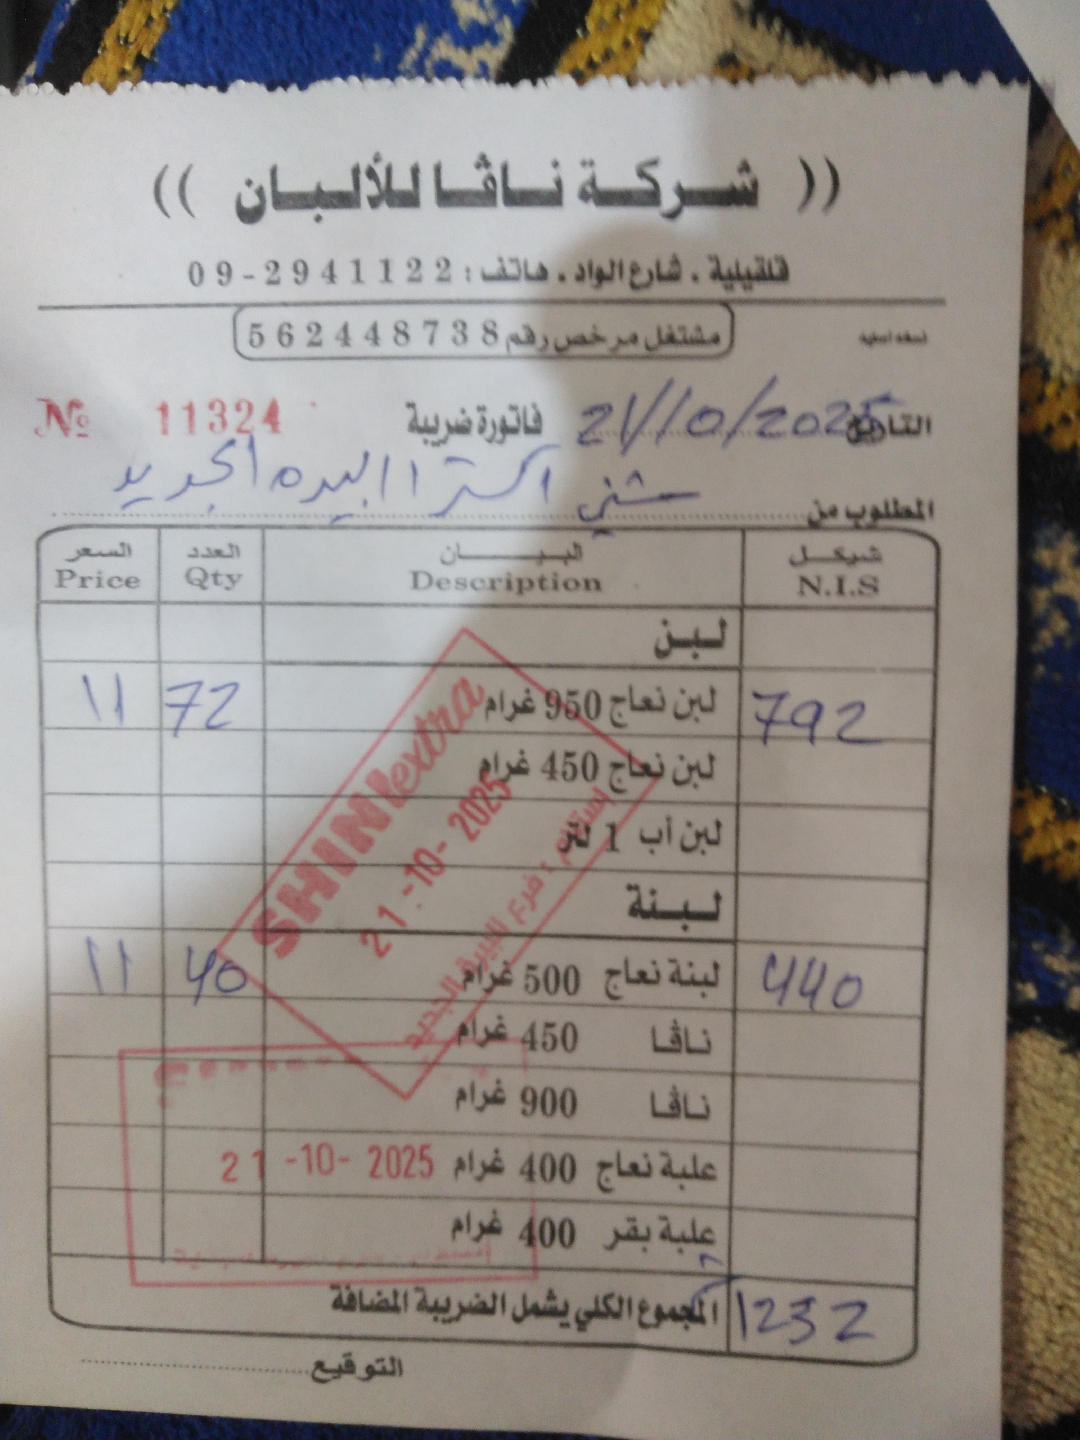 (( شركة ناڤا للألبان ))
قلقيلية . شارع الواد . هاتف : 2941122-09
مشتغل مرخص رقم 562448738
نسخة اصلية
التاريخ 21/10/2025 فاتورة ضريبة № 11324
المطلوب من شني اكسترا البيره الجديد
شيكل البيان العدد السعر
N.I.S Description Qty Price
لبن
792 لبن نعاج 950 غرام 72 11
لبن نعاج 450 غرام
لبن أب 1 لتر
لبنة
440 لبنة نعاج 500 غرام 40 11
ناڤا 450 غرام
ناڤا 900 غرام
علبة نعاج 400 غرام
علبة بقر 400 غرام
المجموع الكلي يشمل الضريبة المضافة 1232
التوقيع
SHINI extra
21-10-2025
فرع البيرة الجديد
21-10-2025